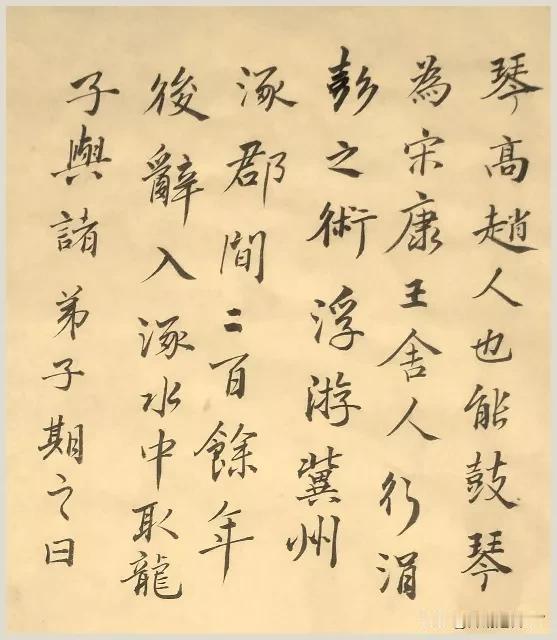 琴高趙人也能鼓琴
為宋康王舍人行涓
彭之術浮游冀州
涿郡間二百餘年
後辭入涿水中取龍
子與諸弟子期之曰